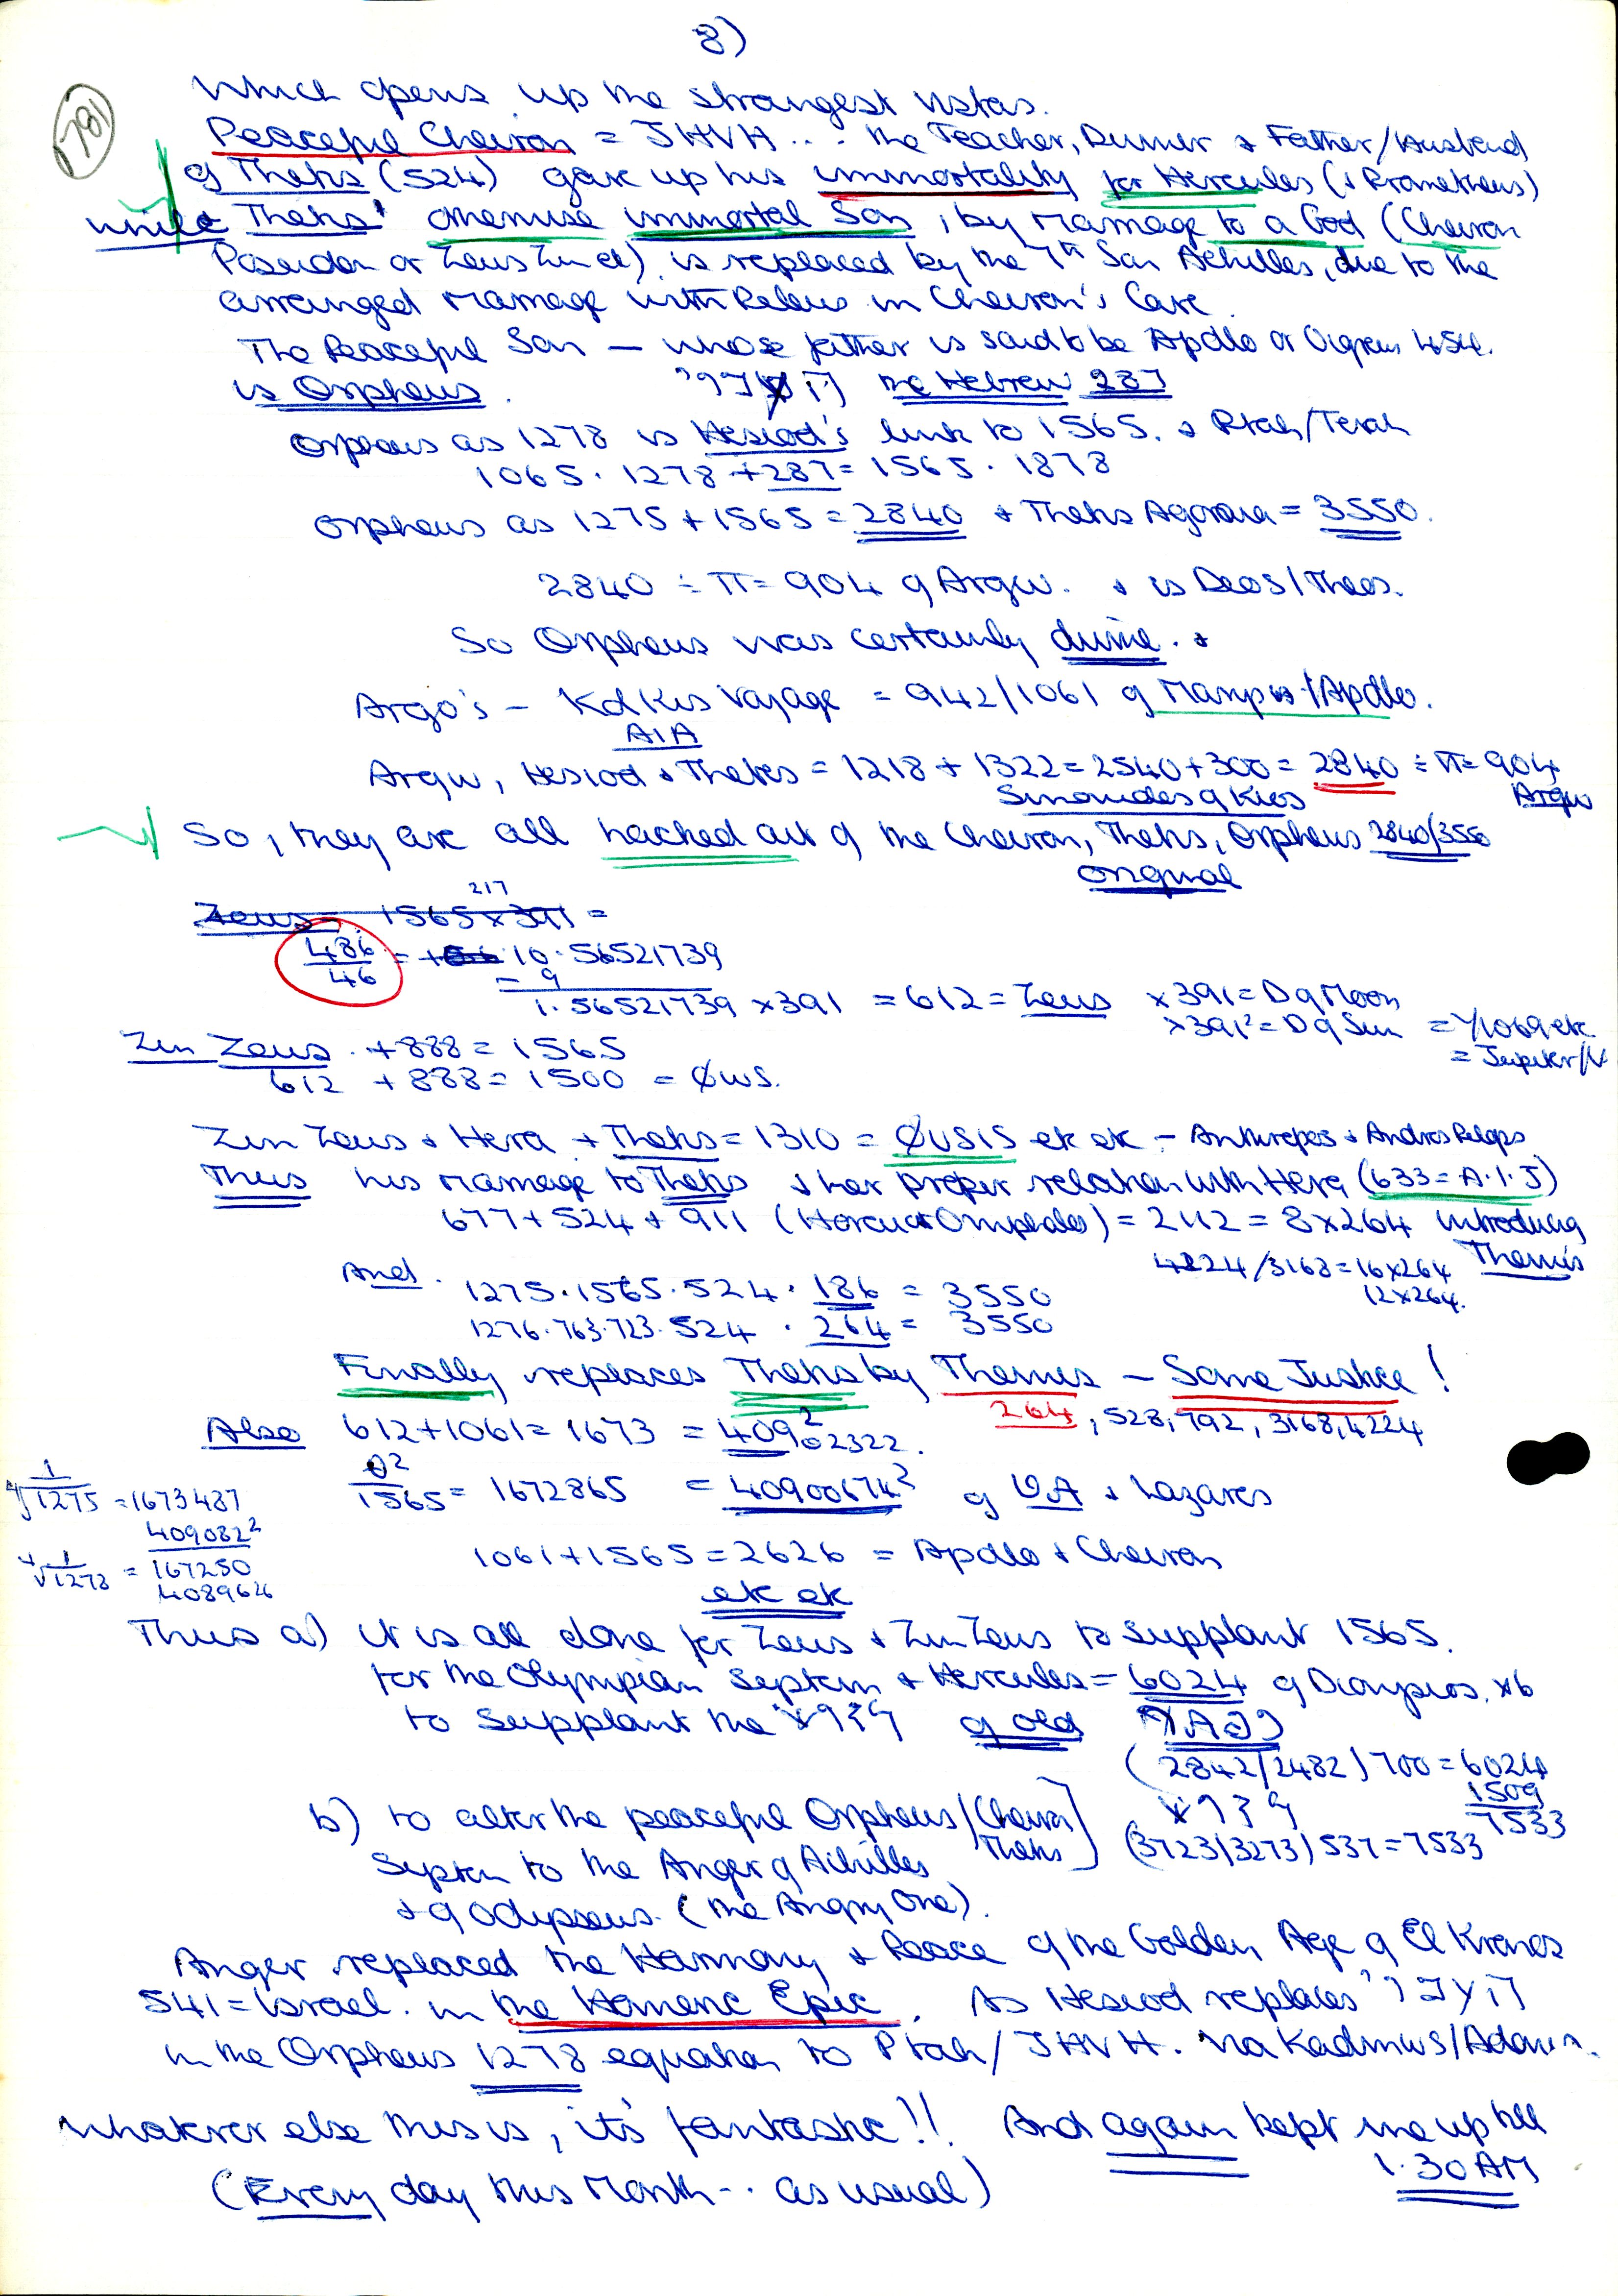 8)
1781
Which opens up the strangest vistas.
Peaceful Cheiron = JHVH ... the Teacher, & Father/Husband
of Thetis (524) gave up his immortality for Hercules (& Prometheus)
while Thetis' otherwise immortal Son, by marriage to a God (Cheiron
Poseidon or Zeus Zin et) is replaced by the 7th Son Achilles, due to the
arranged marriage with Peleus in Cheiron's Cave.
The Peaceful Son – whose father is said to be Apollo or Oigreus 454.
is Orpheus. the Hebrew 287
Orpheus as 1278 is Hesiod's link to 1565. & Ptah/Terah
1065. 1278 + 287 = 1565. 1878
Orpheus as 1275 + 1565 = 2840 + Thetis Agoraia = 3550.
2840 ÷ π = 904 of Argw. & is Deos/Theos.
So Orpheus was certainly divine. &
Argo's – Kolkis Voyage = 942/1061 of Marspos/Apollo.
AIA
Argw, Hesiod & Thetis = 1218 + 1322 = 2540 + 300 = 2840 ÷ π = 904
Simonides of Kios Argw
So, they are all hacked out of the Cheiron, Thetis, Orpheus 2840/3550
original
217
Zeus 1565 x 391 =
486/46 = 10.56521739
- 9
1.56521739 x 391 = 612 = Zeus x 391 = D of Moon
x 391² = D of Sun = 4/1069 etc
= Jupiter/V
Zin Zeus. + 888 = 1565
612 + 888 = 1500 = ΦWS.
Zin Zeus & Hera + Thetis = 1310 = ΦUSIS etc etc – Anthropos & Andros Pelops
Thus his marriage to Thetis & her proper relation with Hera (633 = A.I.J)
677 + 524 + 911 (Horcus Omphalos) = 2112 = 8 x 264 introducing
4224/3168 = 16 x 264 Themis
12 x 264.
And. 1275. 1565. 524. 186 = 3550
1276. 763. 723. 524. 264 = 3550
Finally replaces Thetis by Themis – Some Justice!
264, 528, 792, 3168, 4224
Also 612 + 1061 = 1673 = 409²02322.
θ²/1565 = 1672865 = 40900674² of & Lazarus
⁴√1/1275 = 1673487
409082²
⁴√1/1278 = 167250
408964
1061 + 1565 = 2626 = Apollo & Cheiron
etc etc
Thus a) it is all done for Zeus & Zin Zeus to supplant 1565.
for the Olympian Septem & Hercules = 6024 of Dionysios. x 6
to supplant the of old
(2842/2482) 700 = 6024
1509
7533
b) to alter the peaceful Orpheus/Cheiron
Thetis]
(3723/3273) 537 = 7533
Septem to the Anger of Achilles
& of Odysseus. (the Angry One).
Anger replaced the Harmony & Peace of the Golden Age of El Kronos
541 = Israel. in the Homeric Epic. As Hesiod replaces
in the Orpheus 1278 equation to Ptah/JHVH. via Kadmus/Adam.
Whatever else this is, it's fantastic!! And again kept me up till
1.30 AM
(Every day this Month .. as usual)